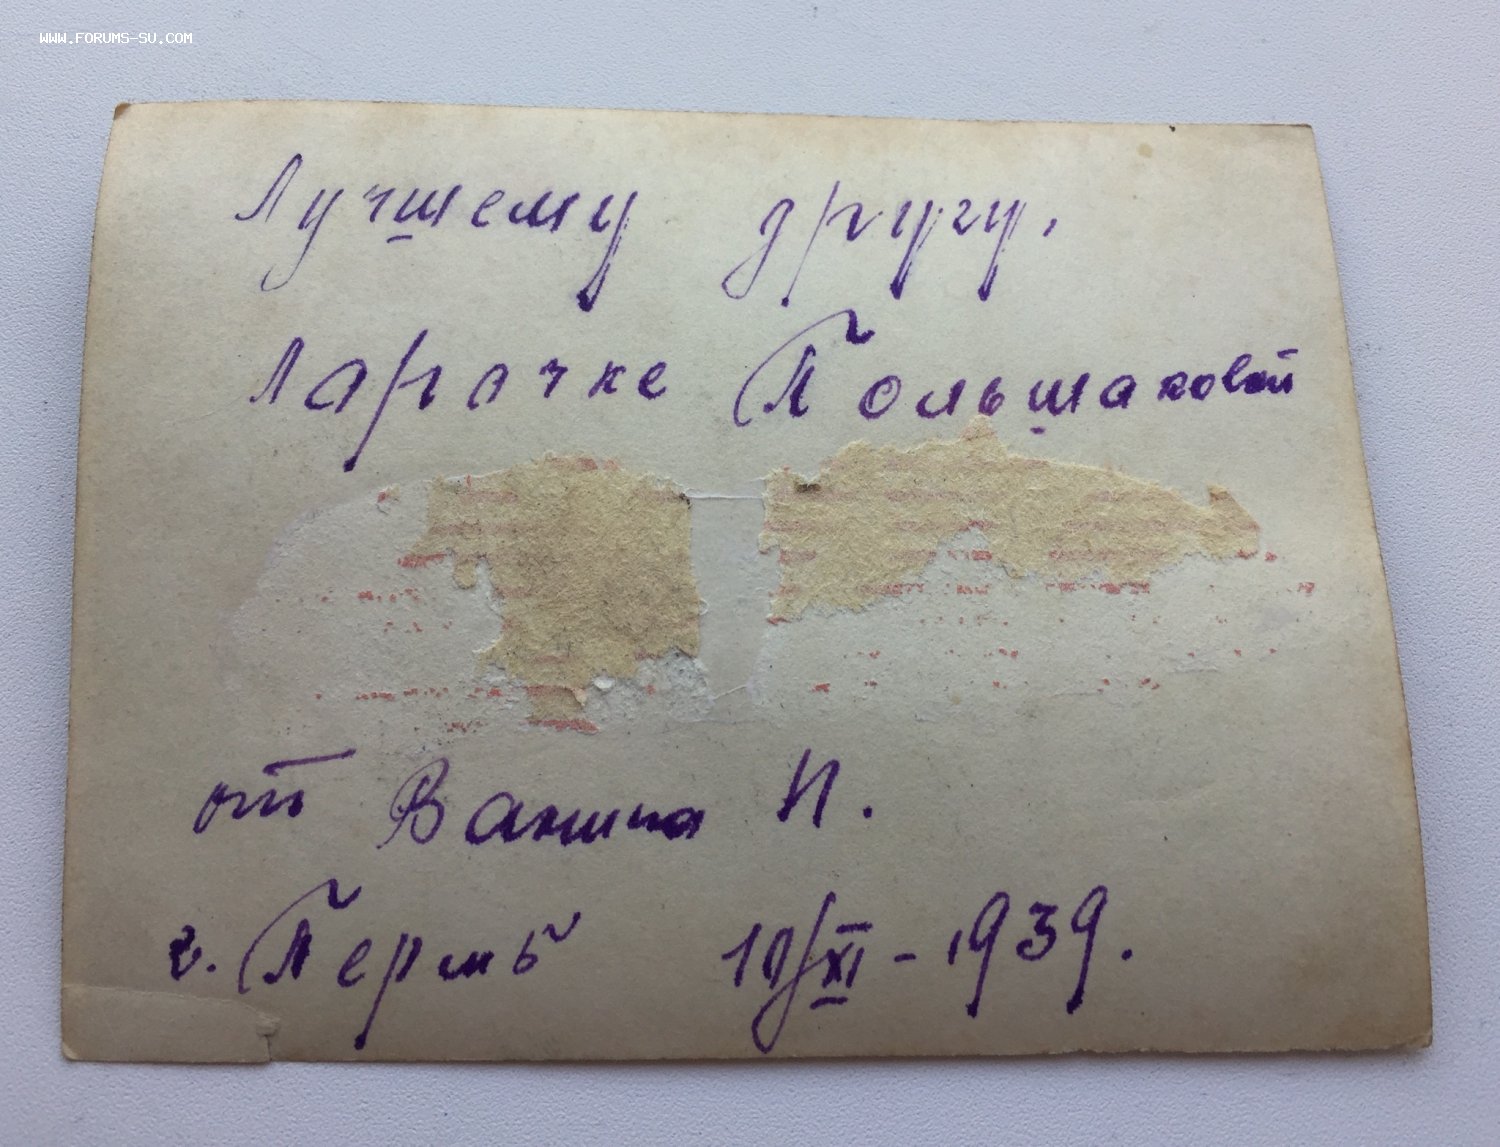 WWW.FORUMS-SU.COM
Лучшему другу,
Ларочке Большаковой
от Ванина Н.
г. Пермь 10/XI-1939.